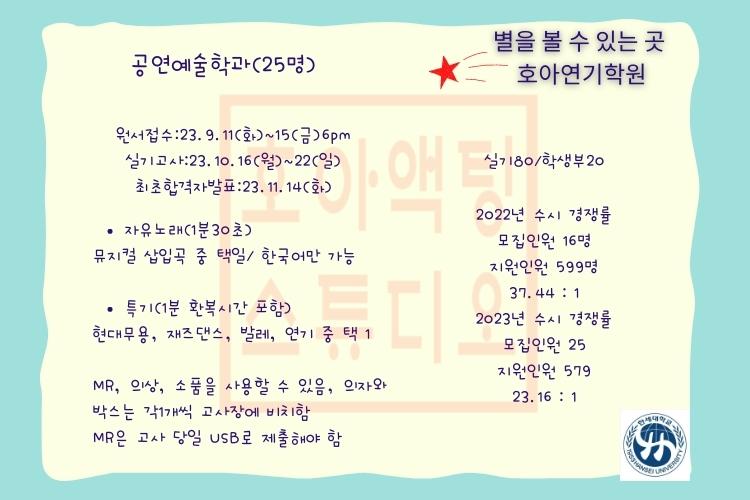 별을 볼 수 있는 곳
호아연기학원
공연예술학과(25명)
원서접수:23.9.11(화)~15(금)6pm
실기고사:23.10.16(월)~22(일)
최초합격자발표:23.11.14(화)
• 자유노래(1분30초)
뮤지컬 삽입곡 중 택일/ 한국어만 가능
• 특기(1분 환복시간 포함)
현대무용, 재즈댄스, 발레, 연기 중 택 1
MR, 의상, 소품을 사용할 수 있음, 의자와
박스는 각1개씩 고사장에 비치함
MR은 고사 당일 USB로 제출해야 함
실기80/학생부20
2022년 수시 경쟁률
모집인원 16명
지원인원 599명
37.44 : 1
2023년 수시 경쟁률
모집인원 25
지원인원 579
23.16 : 1
호아액팅
스튜디오
한세대학교
HANSEI UNIVERSITY